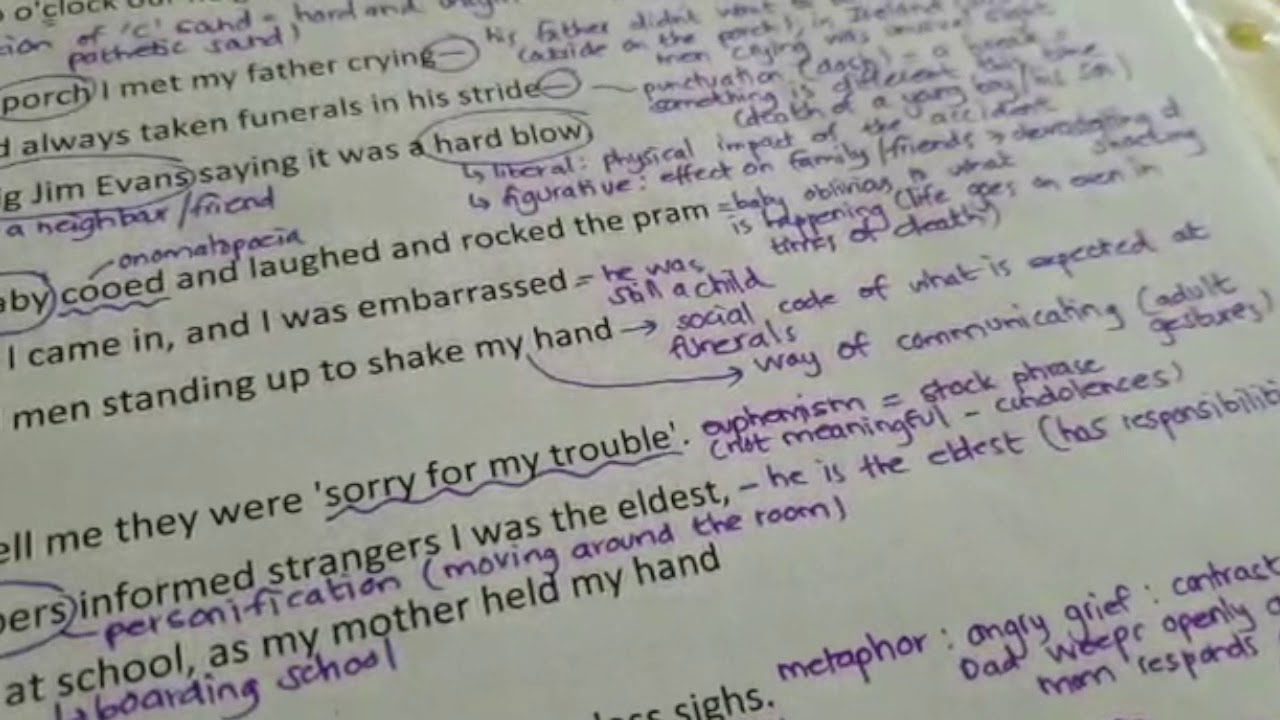 o'clock
ion of 'c' sound = hard and
pathetic sand)
his father didn't want to
(outside on the porch), in Ireland
men crying was unusual
porch I met my father crying—
punctuation (dash) = a break =
something is different this time
(death of a young boy/his son)
always taken funerals in his stride—
g Jim Evans saying it was a hard blow
↳ literal: physical impact of the accident
↳ figurative: effect on family/friends → devastating &
shocking
a neighbour/friend
onomatopoeia
aby cooed and laughed and rocked the pram
=baby oblivious to what
is happening (life goes on even in
times of death)
I came in, and I was embarrassed
= he was
still a child
men standing up to shake my hand
→ social code of what is expected at
funerals
→ way of communicating (adult
gestures)
ell me they were 'sorry for my trouble'.
euphemism = stock phrase
(not meaningful - condolences)
pers informed strangers I was the eldest,
- he is the eldest (has responsibiliti
personification (moving around the room)
at school, as my mother held my hand
↳ boarding school
metaphor : angry grief : contrast
Dad weeps openly
mom responds
less sighs.